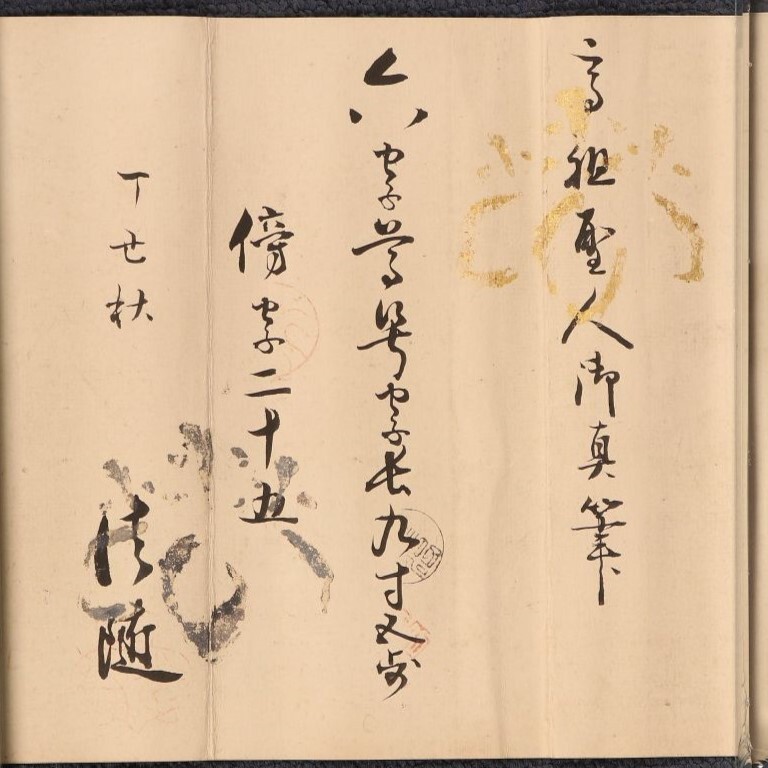 高祖聖人御真筆
六字尊号字長九寸五歩
傍字二十五
丁丑秋
法随